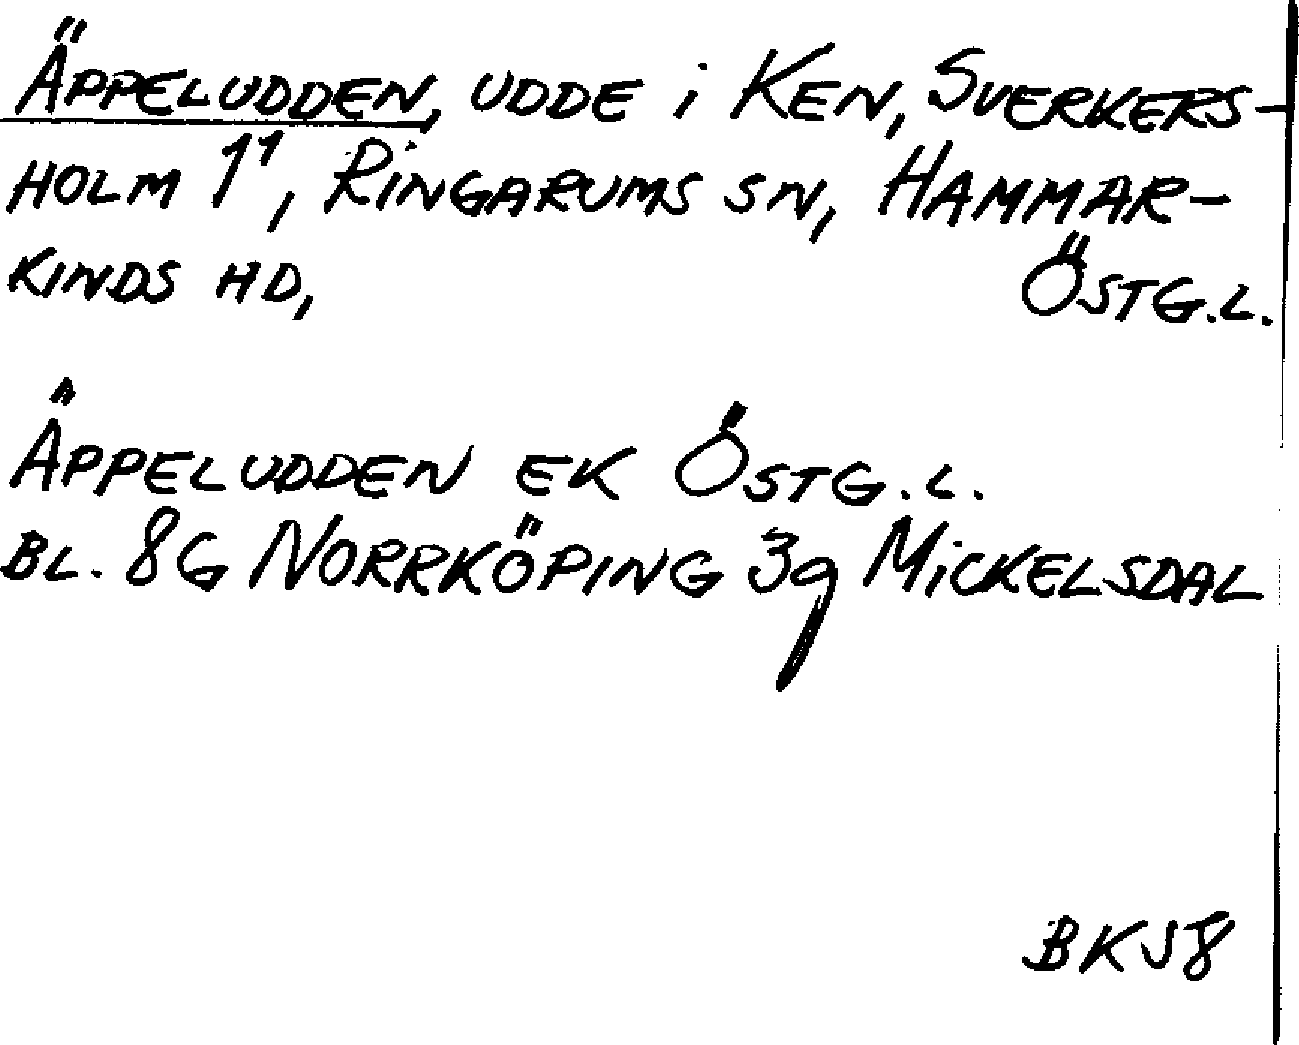 ÄPPELUDDEN, UDDE i KEN, SVERKERS-
HOLM 1¹, RINGARUMS SN, HAMMAR-
KINDS HD, ÖSTG.L.
ÄPPELUDDEN EK ÖSTG.L.
BL. 8G NORRKÖPING 3g MICKELSDAL
BKJ8